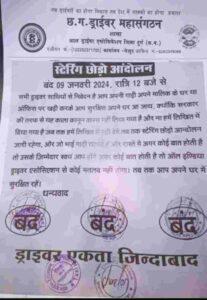 छ.ग.ड्राईवर महासंगठन
स्टेरिंग छोड़ो आंदोलन
बंद 09 जनवरी 2024, रात्रि 12 बजे से
सभी ड्राइवर साथियों से निवेदन है आप अपनी गाड़ी अपने मालिक के घर या
ऑफिस पर खड़ी करके आप सुरक्षित अपने घर आ जाय, क्योंकि सरकार
की तरफ से यह काला कानून वापस नहीं लिया गया है और ना हमें लिखित में
दिया गया है जब तक हमें लिखित में नहीं देते तब तक स्टेरिंग छोड़ो आन्दोलन
जारी रहेगा, और जो भाई गाड़ी और रास्ते में अगर कोई बात होती है
तो उसके जिम्मेदार स्वयं आप होंगे अगर कोई बात होती है तो ऑल इण्डिया
ड्राईवर एसोसिएशन से कोई मतलब नहीं रहेगा। तब तक आप अपने घर में
सुरक्षित रहें।
धन्यवाद
बंद बंद बंद
ड्राइवर एकता जिन्दाबाद